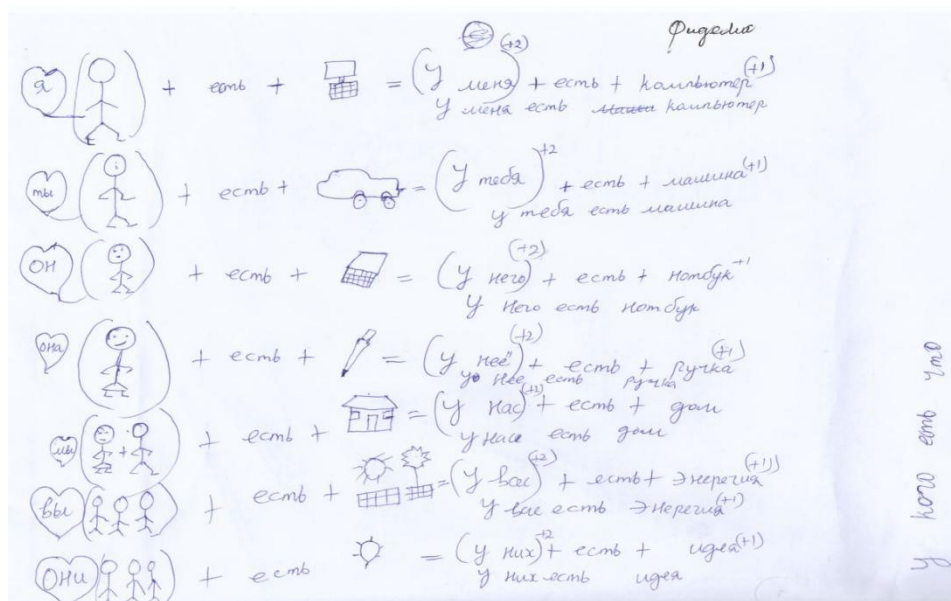 Фиделис
я + есть + = (У меня)(+2) + есть + компьютер(+1)
У меня есть компьютер
ты + есть + = (У тебя)+2 + есть + машина(+1)
У тебя есть машина
он + есть + = (У него)(+2) + есть + нотбук+1
У него есть нотбук
она + есть + = (У неё)(+2) + есть + ручка(+1)
у нее есть ручка
мы + есть + = (У нас)(+2) + есть + дом
У нас есть дом
вы + есть + = (У вас)(+2) + есть + энергия(+1)
У вас есть энергия(+1)
они + есть = (У них)+2 + есть + идея(+1)
У них есть идея
У кого есть что